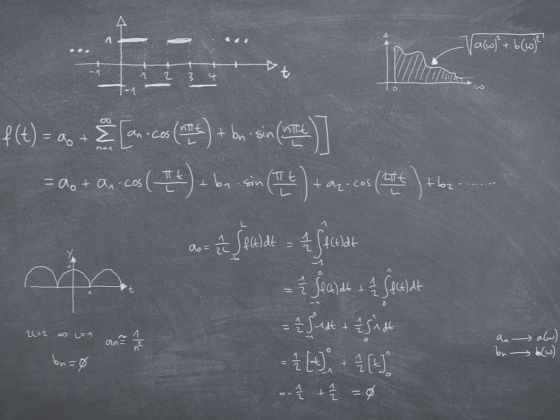 1
...
...
-1
1
2
3
4
t
-1
A
√a(ω)² + b(ω)²
0
ω
f(t) = a₀ + ∑ₙ₌₁^∞ [aₙ·cos(nπt/L) + bₙ·sin(nπt/L)]
= a₀ + a₁·cos(πt/L) + b₁·sin(πt/L) + a₂·cos(2πt/L) + b₂·.......
a₀ = 1/2L ∫₋L^L f(t)dt = 1/2 ∫₋₁^1 f(t)dt
= 1/2 ∫₋₁^0 f(t)dt + 1/2 ∫₀^1 f(t)dt
= 1/2 ∫₋₁^0 -1dt + 1/2 ∫₀^1 1dt
= 1/2 [-t]₋₁^0 + 1/2 [t]₀^1
= -1/2 + 1/2 = ∅
y
1
1
t
2L=2 ⇒ L=1
aₙ≈ 1/n²
bₙ=∅
aₙ → a(ω)
bₙ → b(ω)